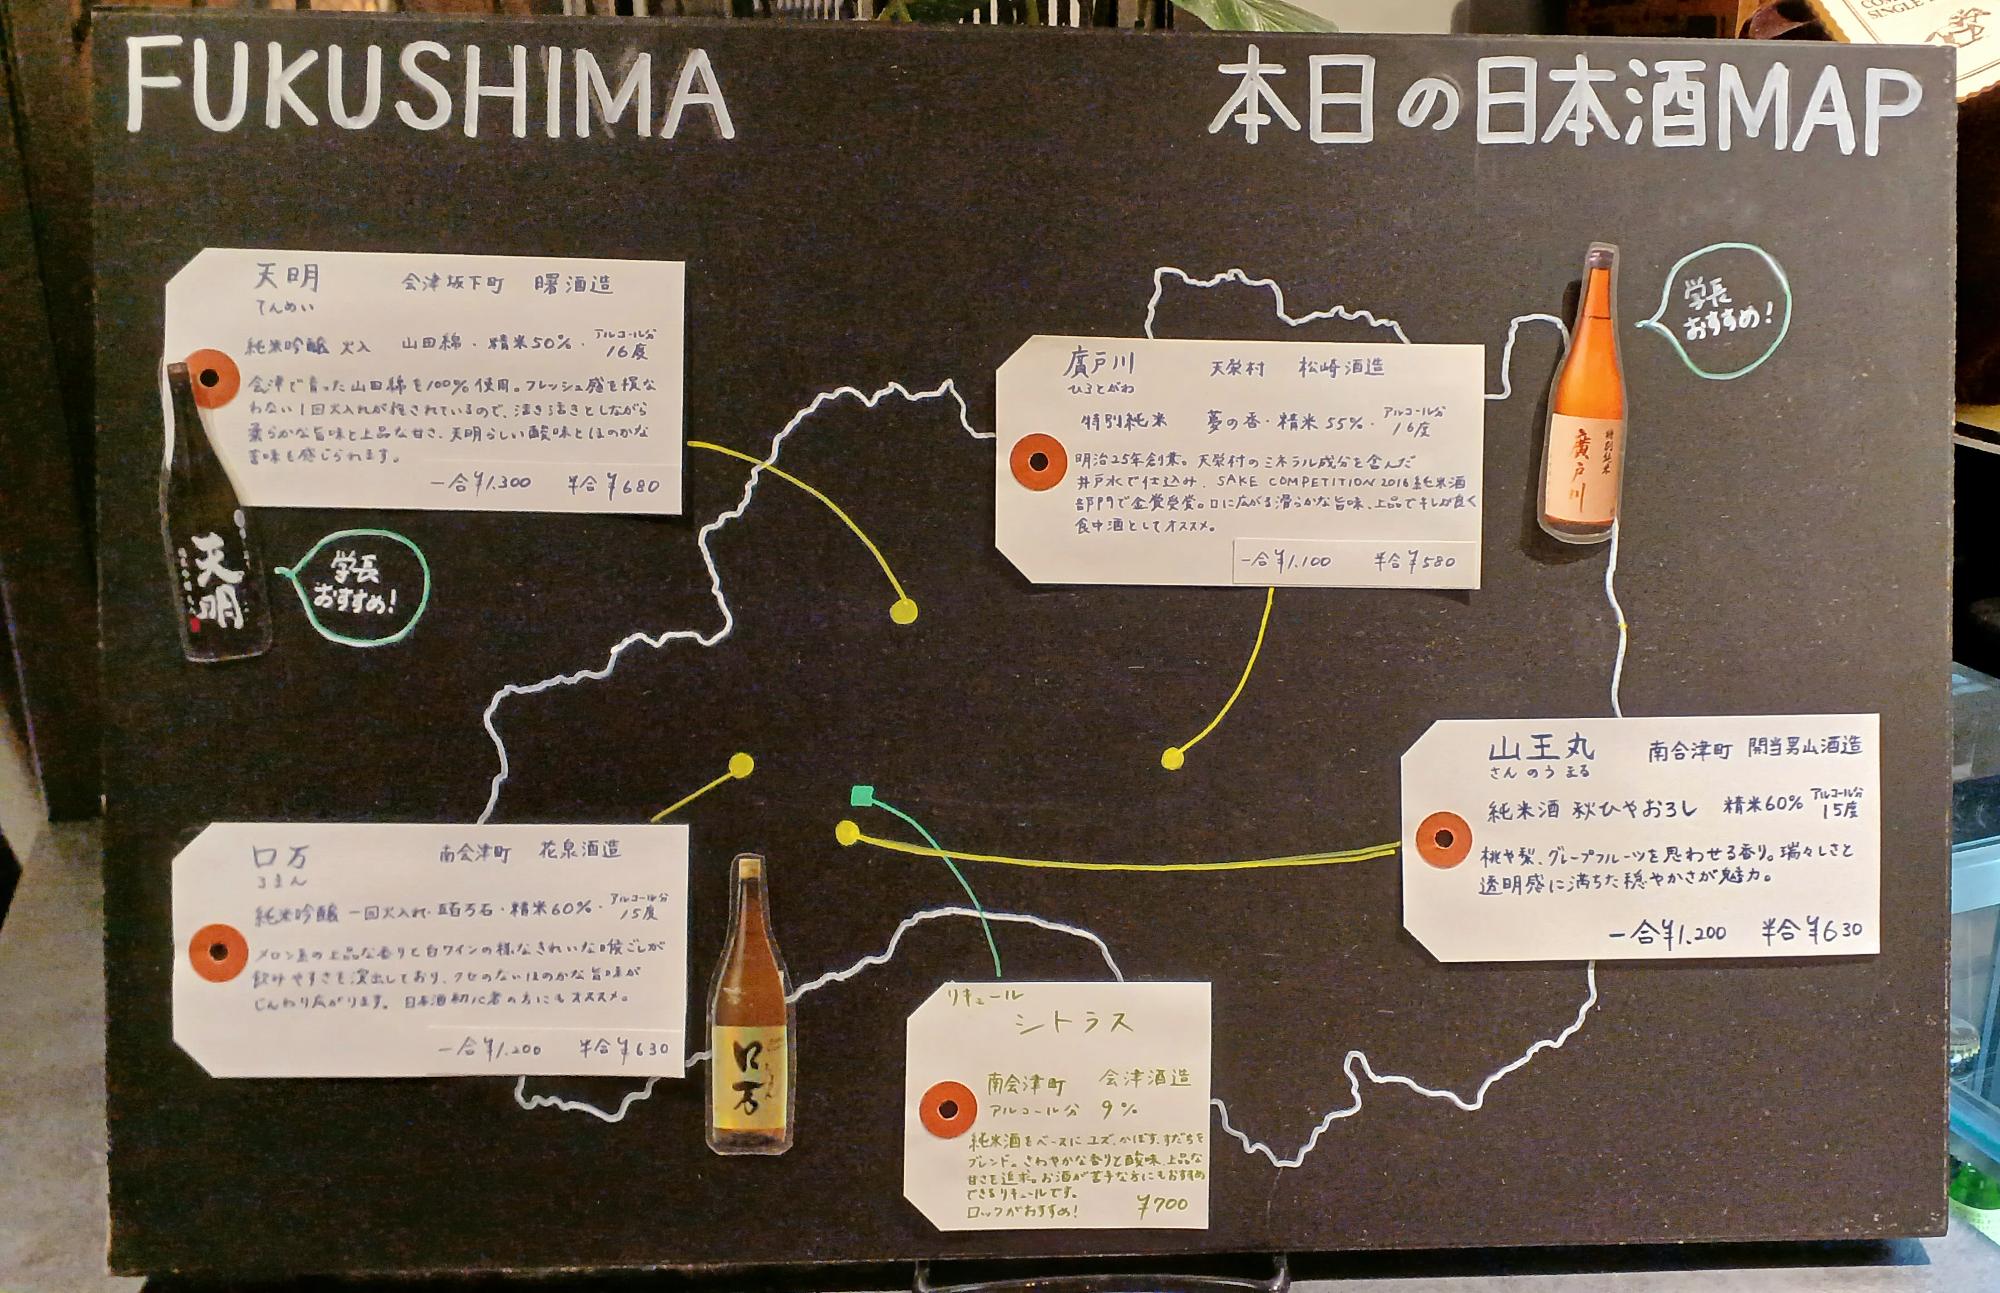 FUKUSHIMA
本日の日本酒MAP
天明
てんめい
会津坂下町 曙酒造
純米吟醸 火入 山田錦・精米50%・アルコール分16度
会津で育った山田錦を100%使用。フレッシュ感を損な
わない1回火入れが施されているので、活き活きとしながら
柔らかな旨味と上品な甘さ、天明らしい酸味とほのかな
苦味も感じられます。
一合¥1.300 半合¥680
天明
学長
おすすめ!
廣戸川
ひろとがわ
天栄村 松崎酒造
特別純米 夢の香・精米55%・アルコール分16度
明治25年創業。天栄村のミネラル成分を含んだ
井戸水で仕込み、SAKE COMPETITION 2016 純米酒
部門で金賞受賞。口に広がる滑らかな旨味、上品でキレが良く
食中酒としてオススメ。
一合¥1.100 半合¥580
特別純米
廣戸川
学長
おすすめ!
山王丸
さんのうまる
南会津町 開当男山酒造
純米酒 秋ひやおろし 精米60% アルコール分15度
桃や梨、グレープフルーツを思わせる香り。瑞々しさと
透明感に満ちた穏やかさが魅力。
一合¥1.200 半合¥630
ロ万
ろまん
南会津町 花泉酒造
純米吟醸 一回火入れ・五百万石・精米60%・アルコール分15度
メロン系の上品な香りと白ワインの様なきれいな喉ごしが
飲みやすさを演出しており、クセのないほのかな旨味が
じんわり広がります。日本酒初心者の方にもオススメ。
一合¥1.200 半合¥630
ロ万
リキュール
シトラス
南会津町 会津酒造
アルコール分 9%
純米酒をベースにユズ、かぼす、すだちを
ブレンド。さわやかな香りと酸味、上品な
甘さを追求。お酒が苦手な方にもおすすめ
できるリキュールです。
ロックがおすすめ! ¥700